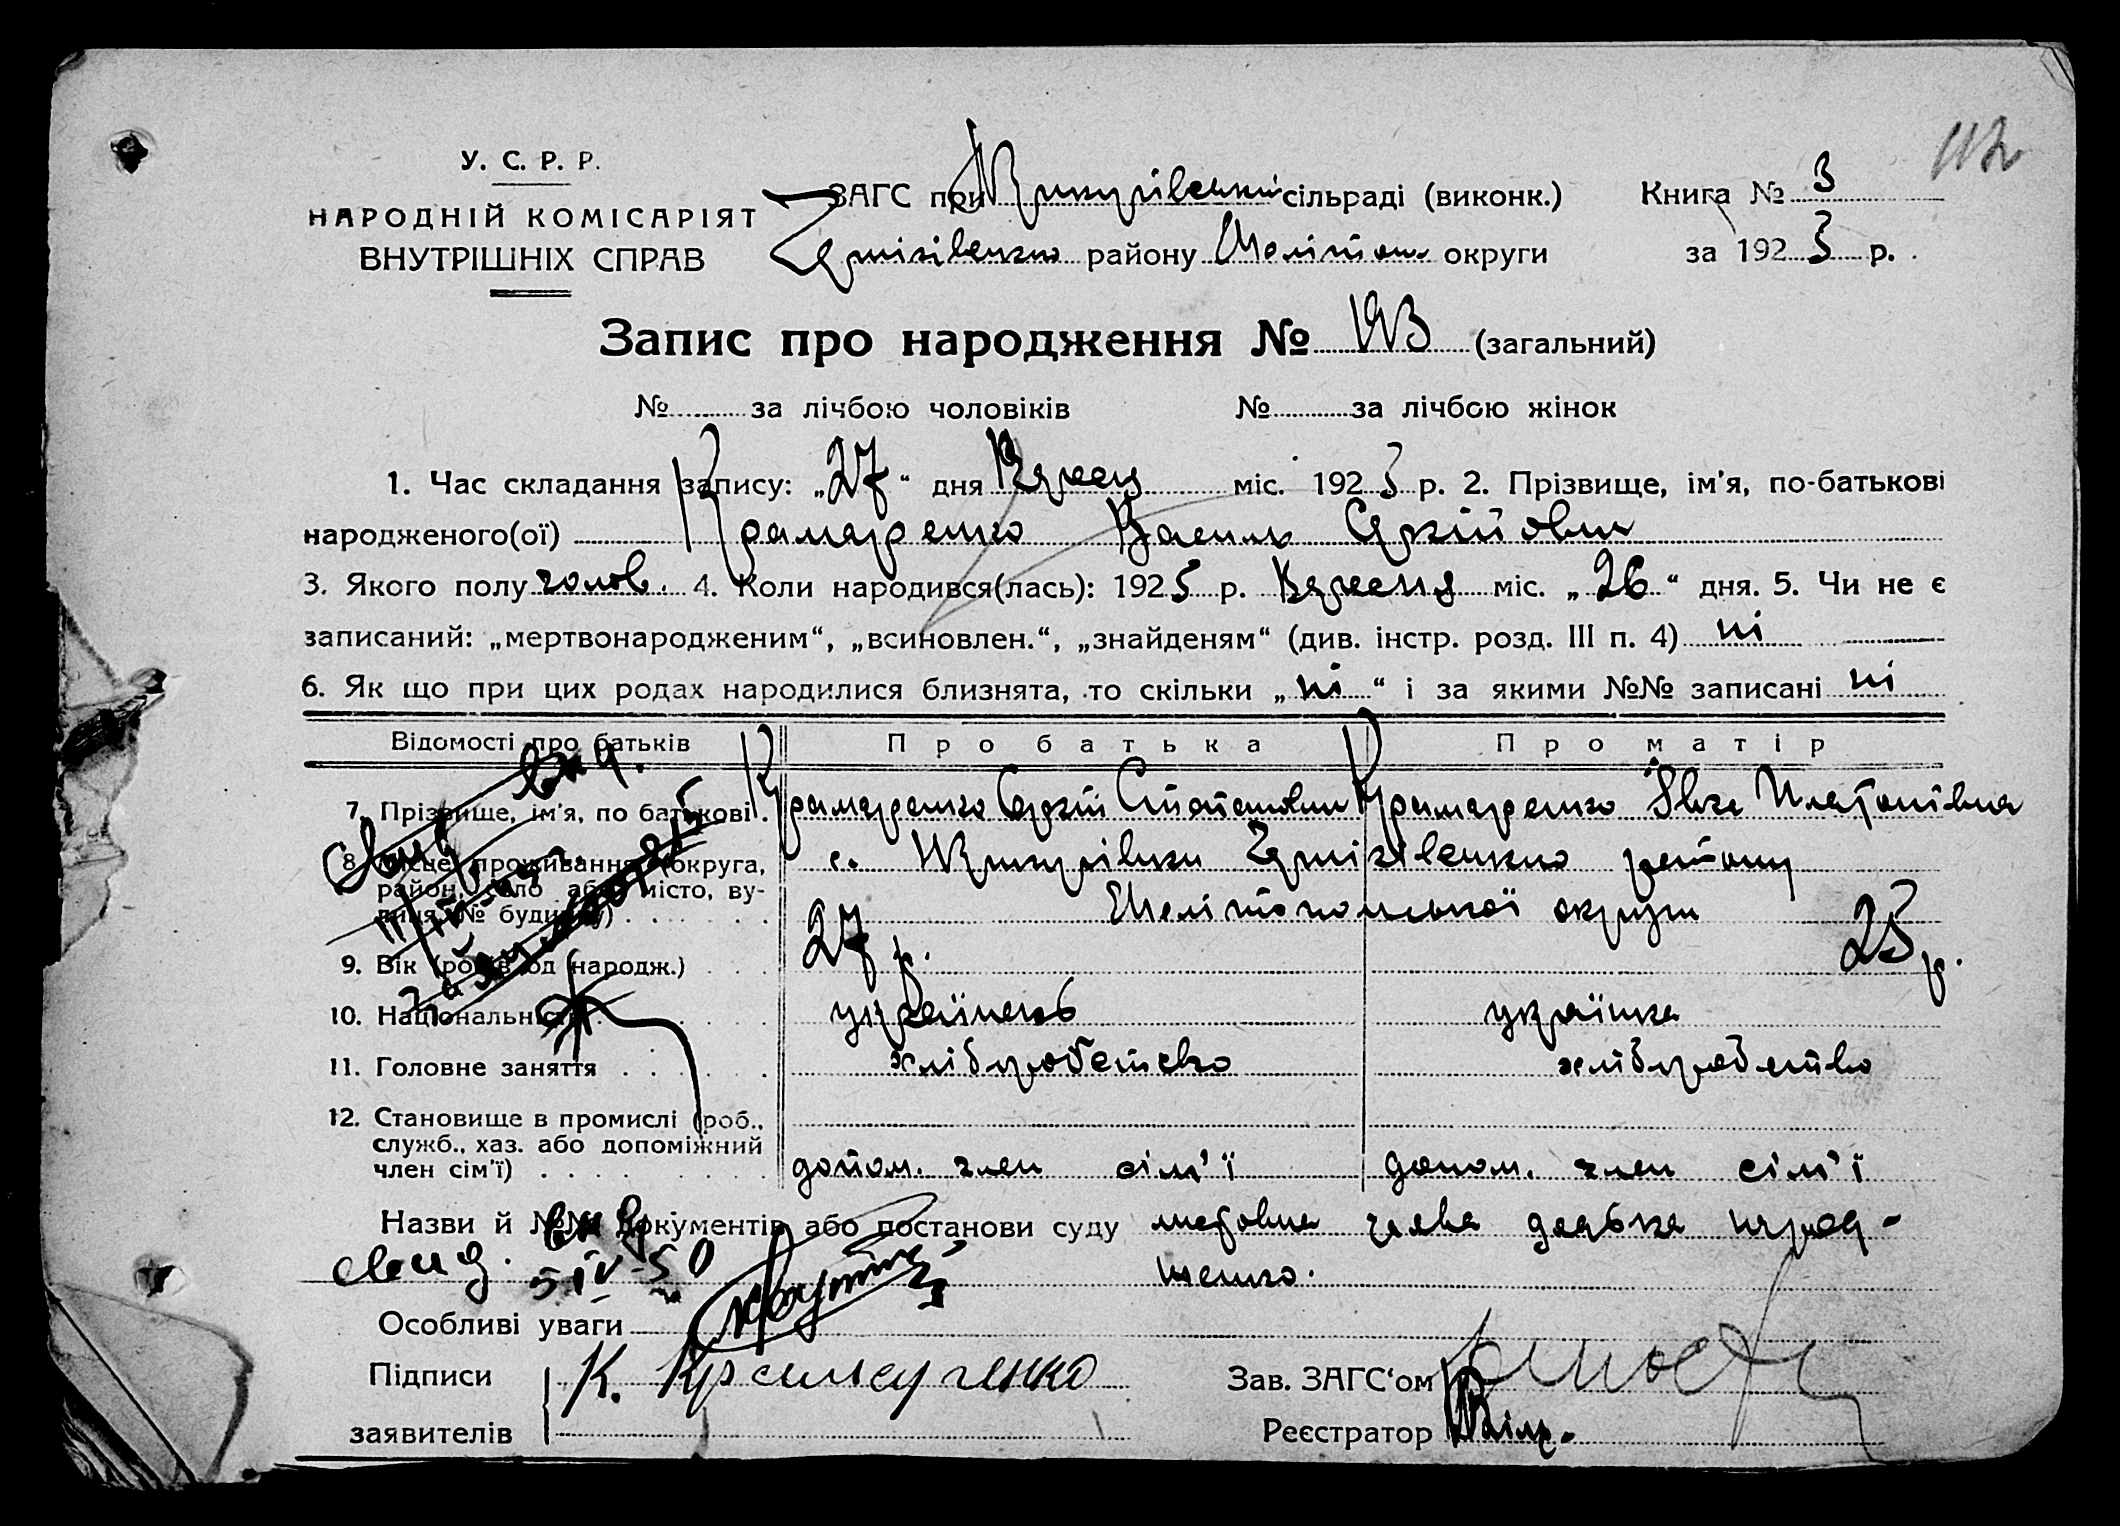 У. С. Р. Р.
НАРОДНІЙ КОМІСАРІЯТ
ВНУТРІШНІХ СПРАВ
ЗАГС при сільраді (виконк.)
Книга № 3
району Мелітоп округи
за 1925 р.
Запис про народження № 193 (загальний)
№ за лічбою чоловіків № за лічбою жінок
1. Час складання запису: „27“ дня Вересня міс. 1925 р. 2. Прізвище, ім'я, по-батькові
народженого(ої) Крамаренко Василь Сергійович
3. Якого полу чолов. 4. Коли народився(лась): 1925 р. Вересня міс. „26“ дня. 5. Чи не є
записаний: „мертвонародженим“, „всиновлен.“, „знайденям“ (див. інстр. розд. III п. 4) ні
6. Як що при цих родах народилися близнята, то скільки „ні“ і за якими №№ записані ні
Відомості про батьків Про батька Про матір
7. Прізвище, ім'я, по батькові. Крамаренко Сергій Степанович Крамаренко Ївга Платонівна
8. Місце проживання (округа,
район, село або місто, ву-
лиця, № будинку)
с. району
Мелітопольської округи
9. Вік (років од народж.) 27 р. 25 р.
10. Національність українець українка
11. Головне заняття хліборобство хліборобство
12. Становище в промислі (роб.,
служб., хаз. або допоміжний
член сім'ї) допом. член сім'ї допом. член сім'ї
Назви й №№ документів або постанови суду
свид. 5 IV-50
Особливі уваги
Підписи К. Крамаренко Зав. ЗАГС'ом
заявителів Реєстратор